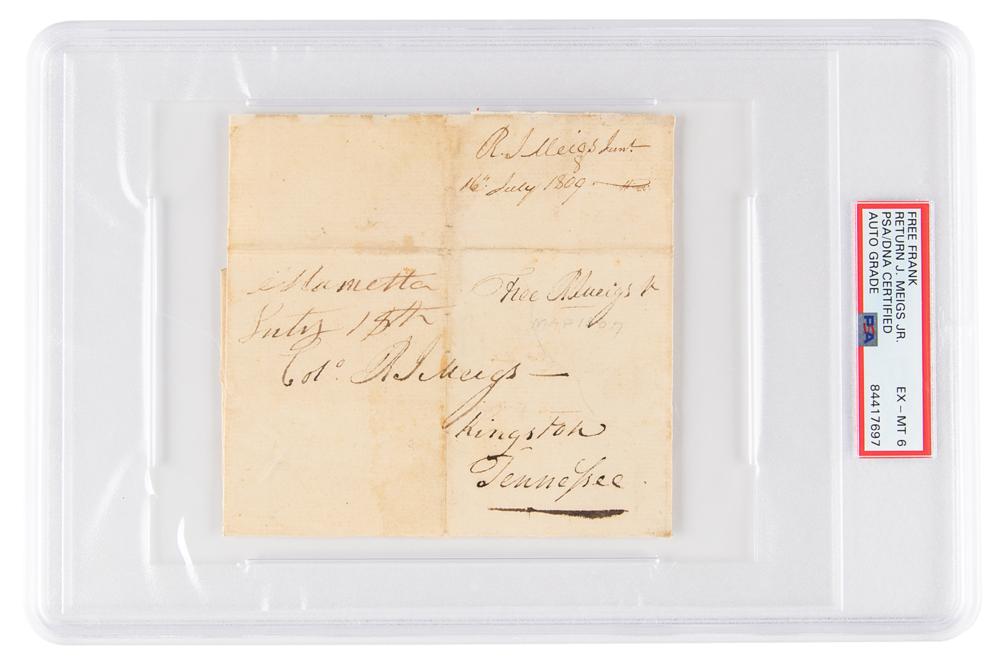 R. J Meigs Junr.
16th July 1809
Marietta
July 18th
Free RJMeigs Jr
Colo. RJ Meigs —
Kingston
Tennessee
FREE FRANK
RETURN J. MEIGS JR.
PSA/DNA CERTIFIED
AUTO GRADE
EX – MT 6
PSA
84417697